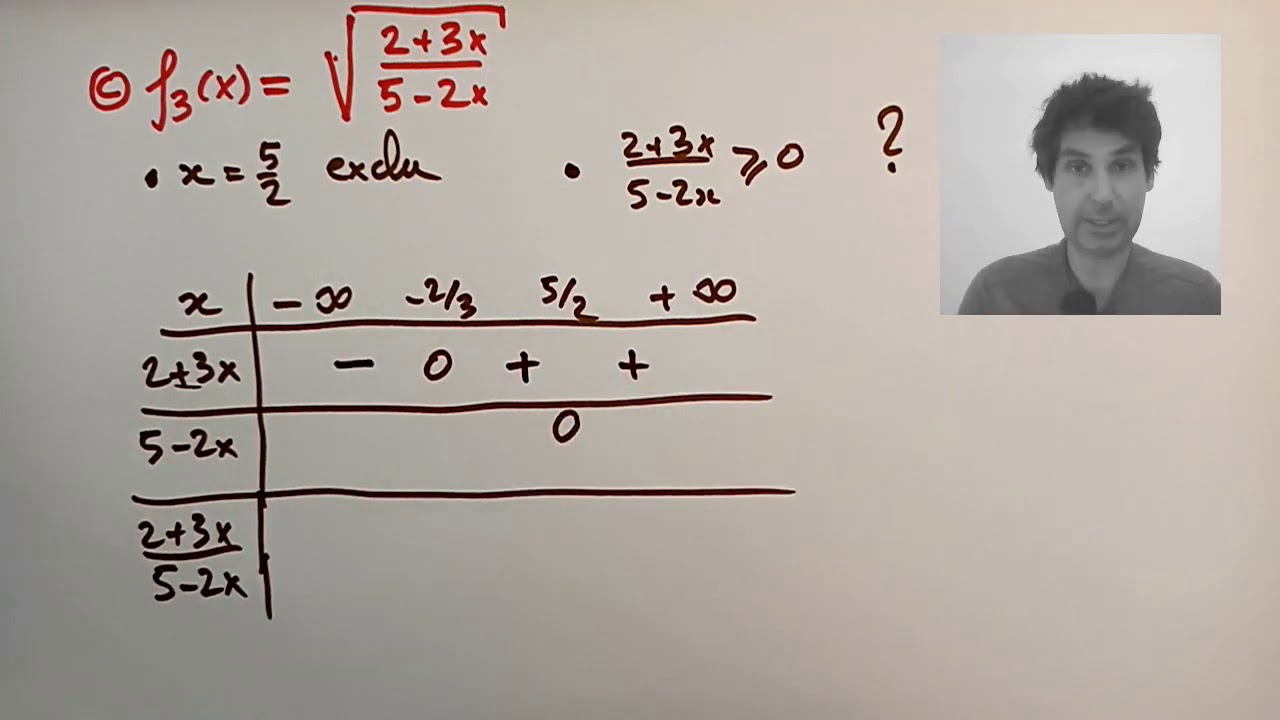 © f₃(x) = √((2+3x)/(5-2x))
• x = 5/2 exclu • (2+3x)/(5-2x) ⩾ 0 ?
x | -∞ -2/3 5/2 +∞
2+3x | - 0 + +
5-2x | 0
(2+3x)/(5-2x) |